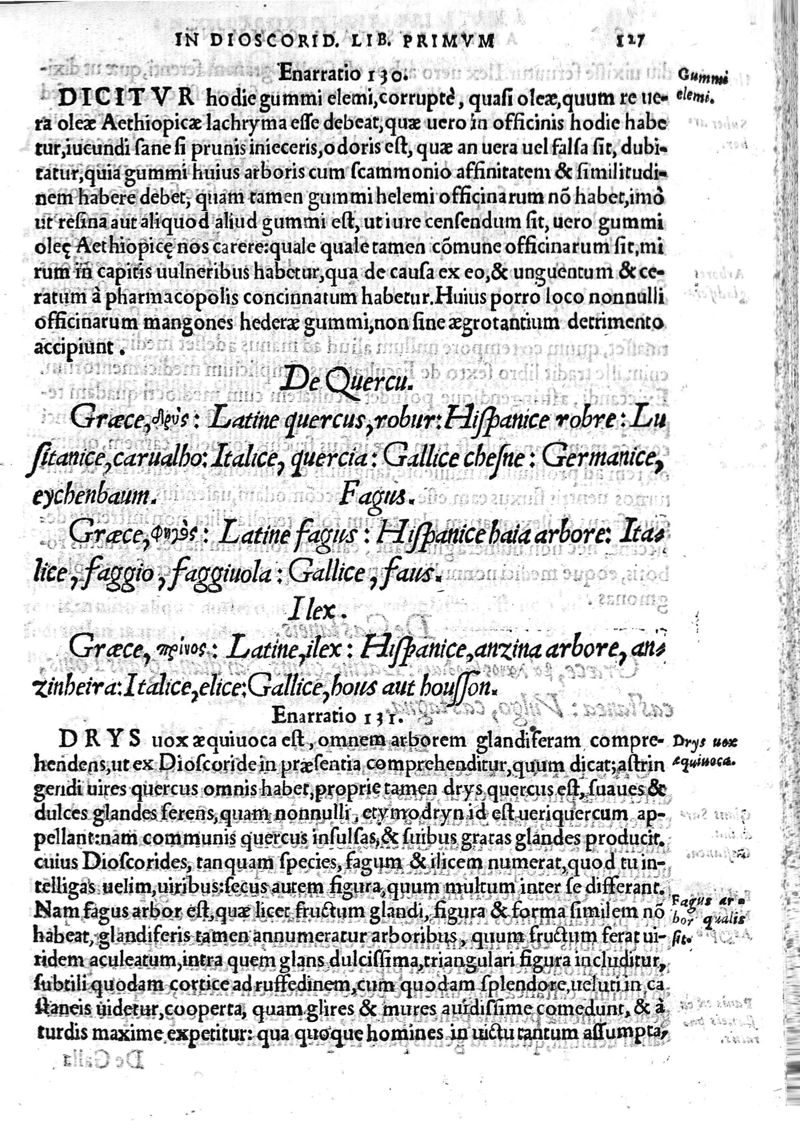 IN DIOSCORID. LIB. PRIMVM 127
Enarratio 130.
Gummi
elemi.
DICITVR hodie gummi elemi, corruptè, quasi oleæ, quum re ue-
ra oleæ Aethiopicæ lachryma esse debeat, quæ uero in officinis hodie habe
tur, iucundi sane si prunis inieceris, odoris est, quæ an uera uel falsa sit, dubi-
tatur, quia gummi huius arboris cum scammonio affinitatem & similitudi-
nem habere debet, quam tamen gummi helemi officinarum nõ habet, imò
ut resina aut aliquod aliud gummi est, ut iure censendum sit, uero gummi
oleę Aethiopicę nos carere: quale quale tamen cõmune officinarum sit, mi
rum in capitis uulneribus habetur, qua de causa ex eo, & unguentum & ce-
ratum à pharmacopolis concinnatum habetur. Huius porro loco nonnulli
officinarum mangones hederæ gummi, non sine ægrotantium detrimento
accipiunt.
De Quercu.
Græce, δρῦς: Latine quercus, robur: Hispanice robre: Lu
sitanice, carualho: Italice, quercia: Gallice chesne: Germanice,
eychenbaum. Fagus.
Græce, φηγὸς: Latine fagus: Hispanice haia arbore: Ita-
lice, faggio, faggiuola: Gallice, faus.
Ilex.
Græce, πρίνος: Latine, ilex: Hispanice, anzina arbore, an-
zinheira: Italice, elice: Gallice, hous aut housson.
Enarratio 131.
DRYS uox æquiuoca est, omnem arborem glandiferam compre-
Drys uox
æquiuoca.
hendens, ut ex Dioscoride in præsentia comprehenditur, quum dicat; astrin
gendi uires quercus omnis habet, proprie tamen drys quercus est, suaues &
dulces glandes ferens, quam nonnulli, etymodryn id est ueriquercum ap-
pellant: nam communis quercus insulsas, & suibus gratas glandes producit.
cuius Dioscorides, tanquam species, fagum & ilicem numerat, quod tu in-
telligas uelim, uiribus: secus autem figura, quum multum inter se differant.
Nam fagus arbor est, quæ licet fructum glandi, figura & forma similem nõ
Fagus ar-
bor qualis
sit.
habeat, glandiferis tamen annumeratur arboribus, quum fructum ferat ui-
ridem aculeatum, intra quem glans dulcissima, triangulari figura includitur,
subtili quodam cortice ad ruffedinem, cum quodam splendore, ueluti in ca
staneis uidetur, cooperta, quam glires & mures auidissime comedunt, & à
turdis maxime expetitur: qua quoque homines in uictu tantum assumpta,